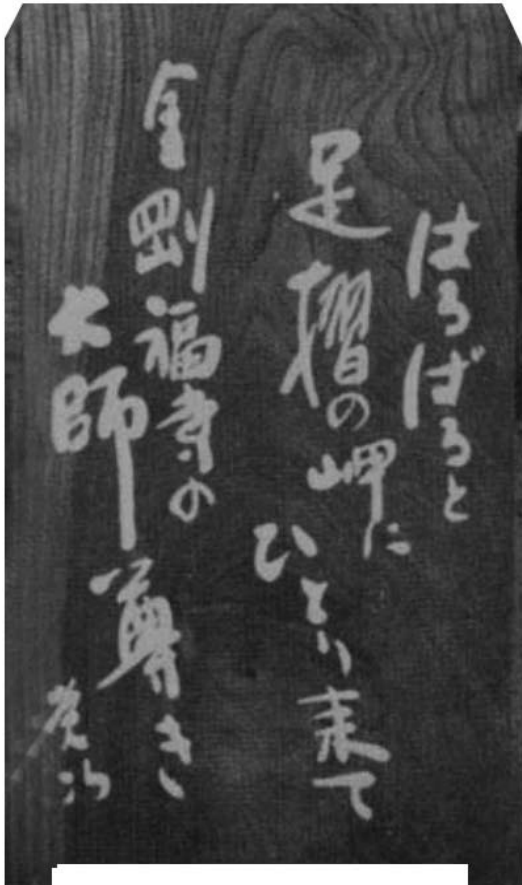 はろばろと
足摺の岬に
ひとり来て
金剛福寺の
大師尊き